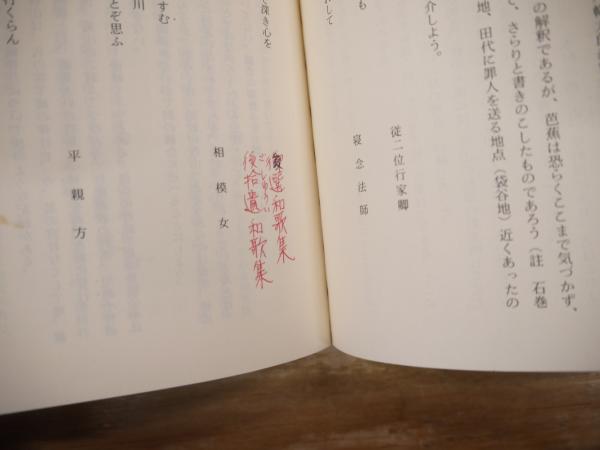 の解釈であるが、芭蕉は恐らくここまで気づかず、
て、さらりと書きのこしたものであろう（註　石巻
地、田代に罪人を送る地点（袋谷地）近くあったの
介しよう。
従二位行家卿
も
寝念法師
して
後遺和歌集
ごしゅうい
後拾遺和歌集
深き心を
相模女
すむ
川
とぞ思ふ
平親方
行くらん